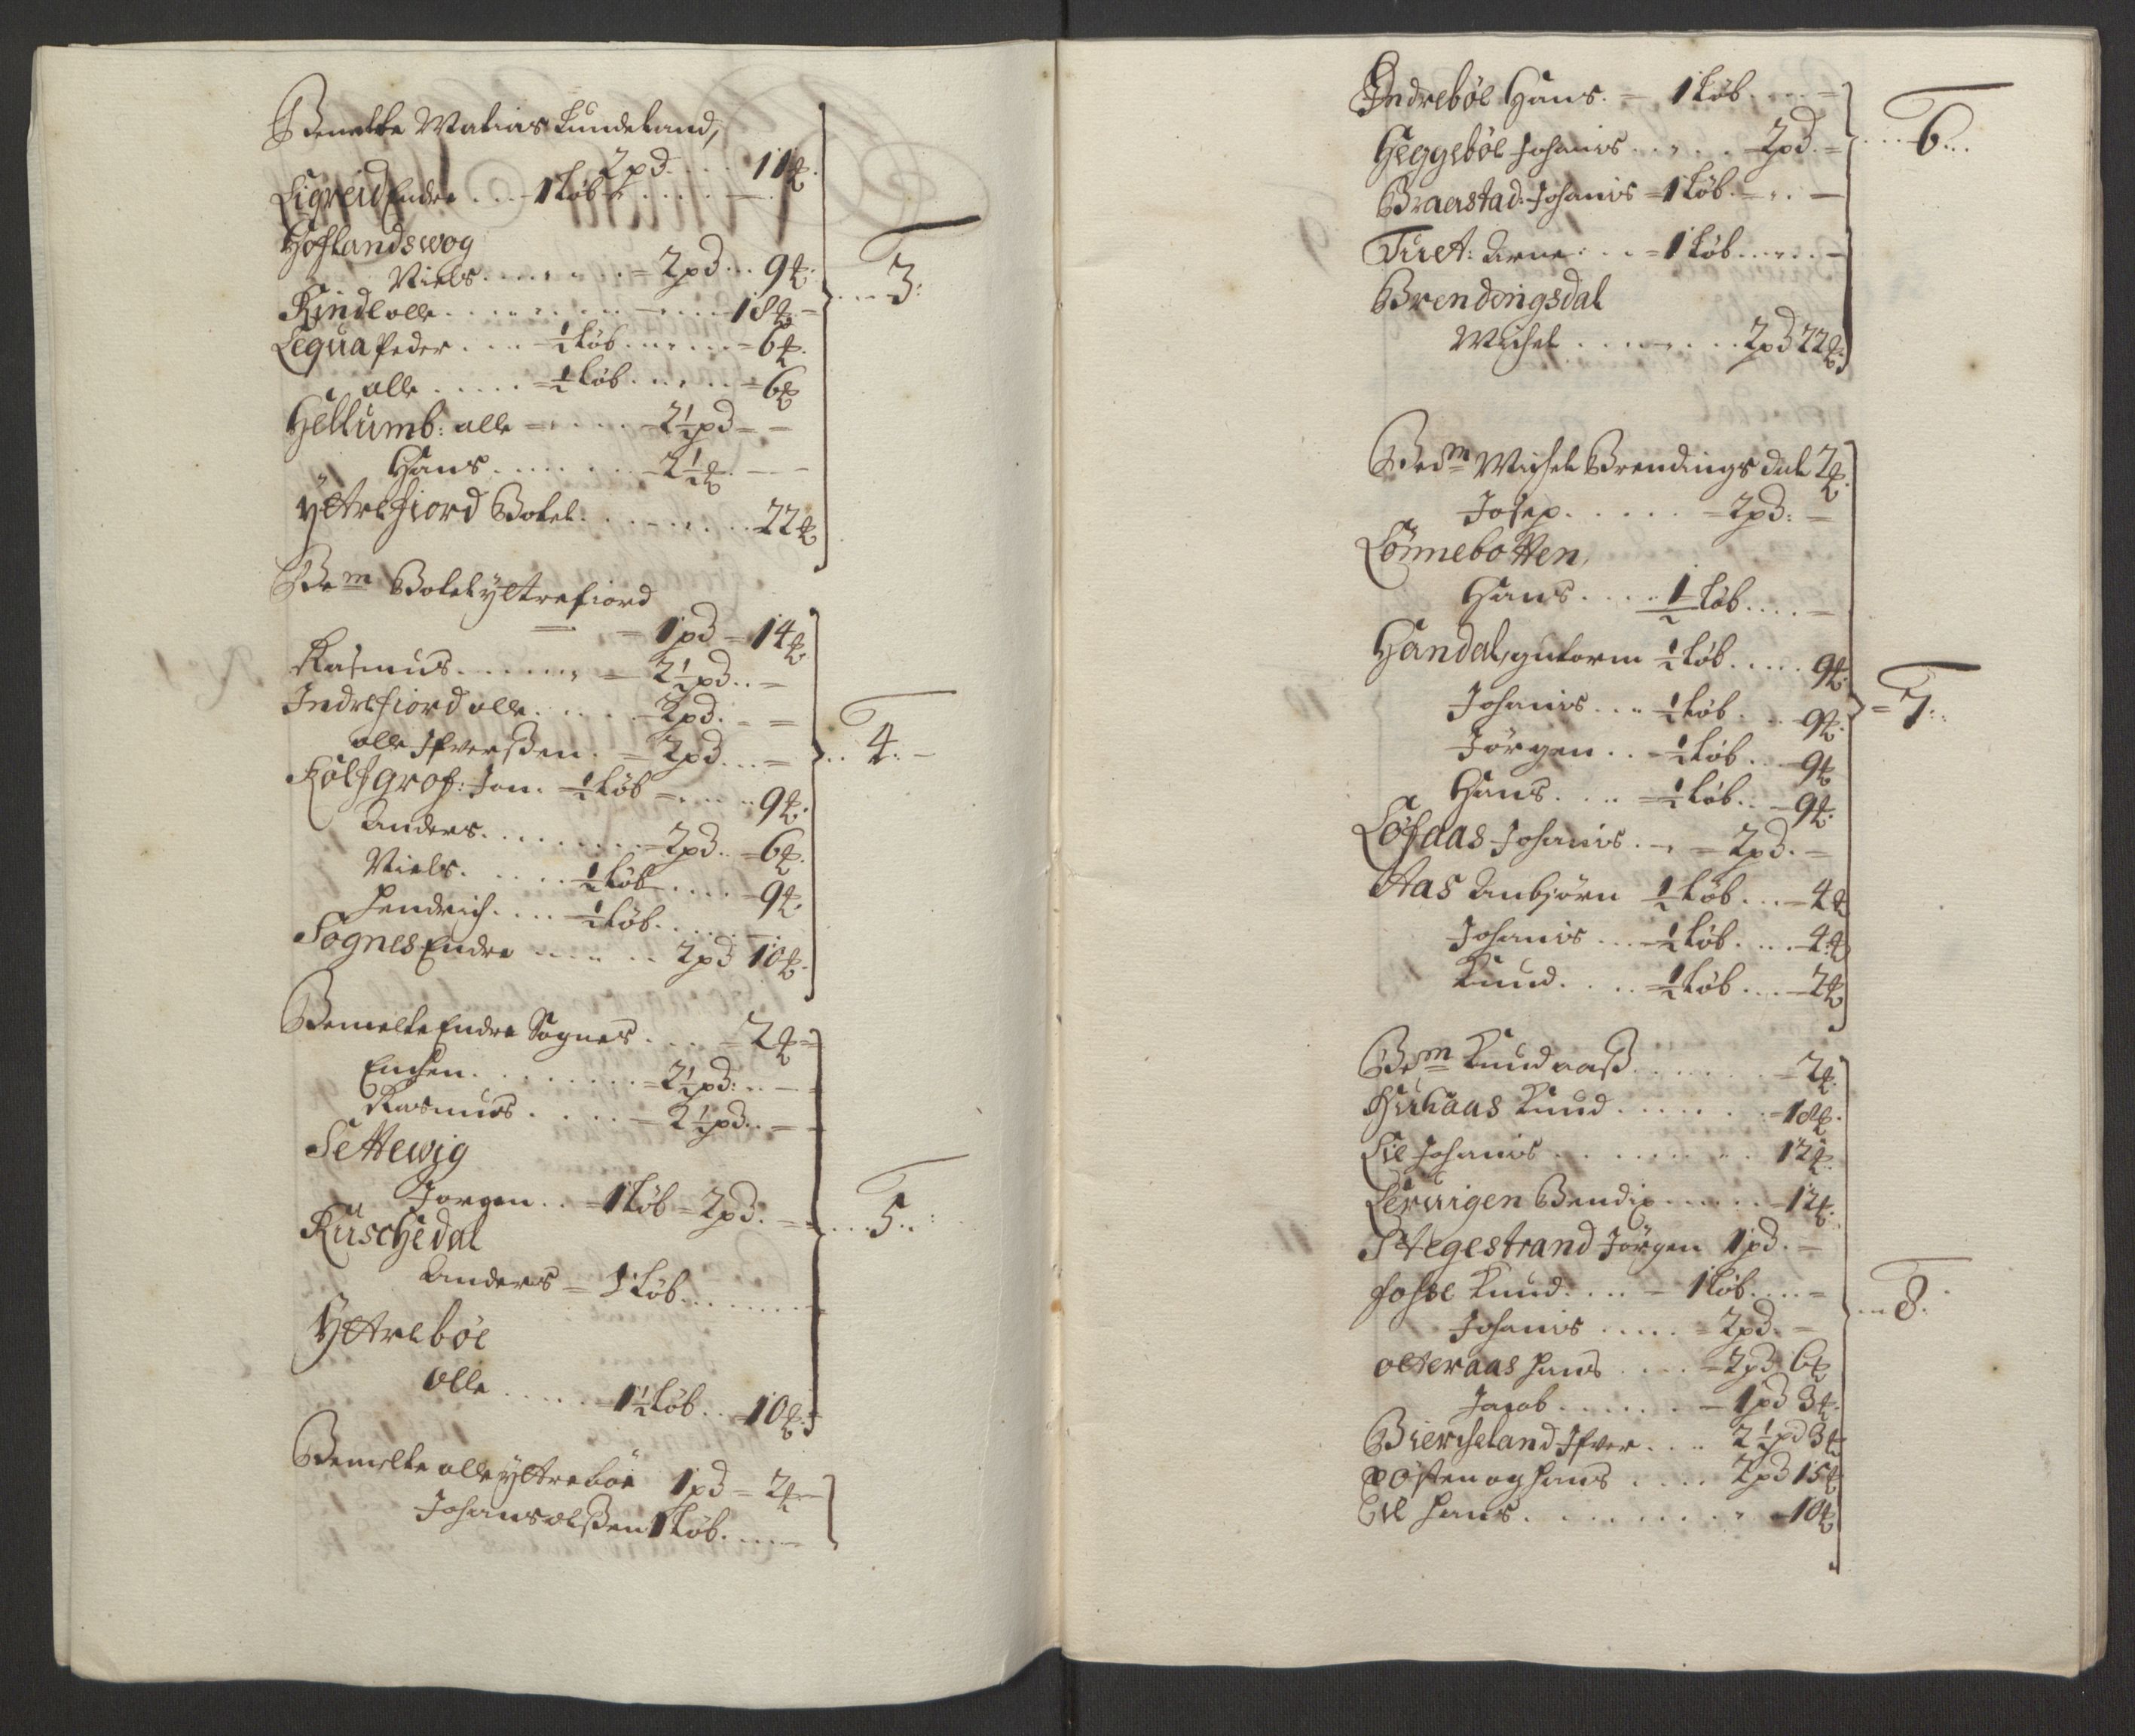 Bemelte Matias Lundeland,
2 pd . . . 11 ℔.
Sigreid Endre . . . 1 Løb . . . .
Hoflandswog
Niels . . . . . . = 2 pd . . . 9 ℔.
Rindl olle . . . . . . . . . . . 18 ℔ =
Legua Peder . . . ½ Løb . . . . = 6 ℔.
olle . . . . . = ½ Løb . . . . = 6 ℔
Hellumb: olle = . . . . 2½ pd = =
Hans . . . . . . . 2½ ℔. — —
3:
Yttrefiord Botel . . . . . . . . 22 ℔
Bem Botel yttrefiord
= = 1 pd = 14 ℔
Rasmus . . . . . . = 2½ pd . . =
Indrefiord olle . . . . . 2 pd. = =
olle Ifverßen. = 2 pd . . . =
4.
Kolfgrof: Jon. = ½ Løb = . . . . 9 ℔.
Anders . . . . . . . . = 2 pd. = 6 ℔.
Niels . . . . . ½ Løb . . . . 9 ℔.
Hendrich . . . . ½ Løb . . . . .
Sognes Endre . . . . . . 2 pd 10 ℔.
Bemelte Endre Sognes . . . = 2 ℔ =
Enchen . . . . . . . . = 2½ pd: . . — =
Rasmus . . . . . = 2½ pd . . = =
Settewig
Jorgen . . = 1 Løb = 2 pd. = =
5 . . :
Ruschedal
Anders = 1 Løb . . . . . . . .
Yttrebøe
Olle . . . . . = 1½ Løb . . = 10 ℔. =
Bemelte olle yttrebøe 1 pd = 2 ℔ —
Johans olßen 1 Løb . . . . —
Indrebøe Hans. = 1 Løb . . . . =
Heggebøe Johanis . . . . 2 pd. =
6 . . .
Braastad: Johanis = 1 Løb. = . . —
Tuet: Arne . . . = 1 Løb . . . . . =
Brendingsdal
Michel . . . . . . . 2 pd 22 ℔
Bedm Michel Brendings dal 2 ℔.
Josep . . . . . = 2 pd: =
Lonnebotten,
Hans . . . . ½ Løb . . . . =
Handal, gutorm ½ Løb . . . . 9 ℔.
Johanis . . . = ½ Løb . . . 9 ℔.
= 7: .
Jørgen . . . = ½ Løb . . . 9 ℔
Hans . . . . = ½ Løb . . . 9 ℔.
Løfaas Johanis . . = 2 pd. =
Aas Anbiørn ½ Løb . . . = 4 ℔
Johanis . . . = ½ Løb . . . . 4 ℔
Knud . . . . = ½ Løb . . . = 2 ℔
Bem Knud aaß . . . . . . = 2 ℔.
Knud . . . . . . . = 18 ℔.
Lie Johanis . . . . . . . . . 12 ℔.
Lerwigen Bendix . . . . . . = 12 ℔.
Stegestrand Jørgen 1 pd. =
Fosse Knud . . . . = 1 Løb . . . . =
. . . 8.
Johanis . . . . . = 2 pd. =
olteraas Hans . . . . = 2 pd 6 ℔
Jacob . . . . . . . = 1 pd 3 ℔.
Biercheland Ifver . . . 2½ pd 3 ℔
Østen og Hans . . . . 2 pd 15 ℔
Hans . . . . . . . . . . = 10 ℔